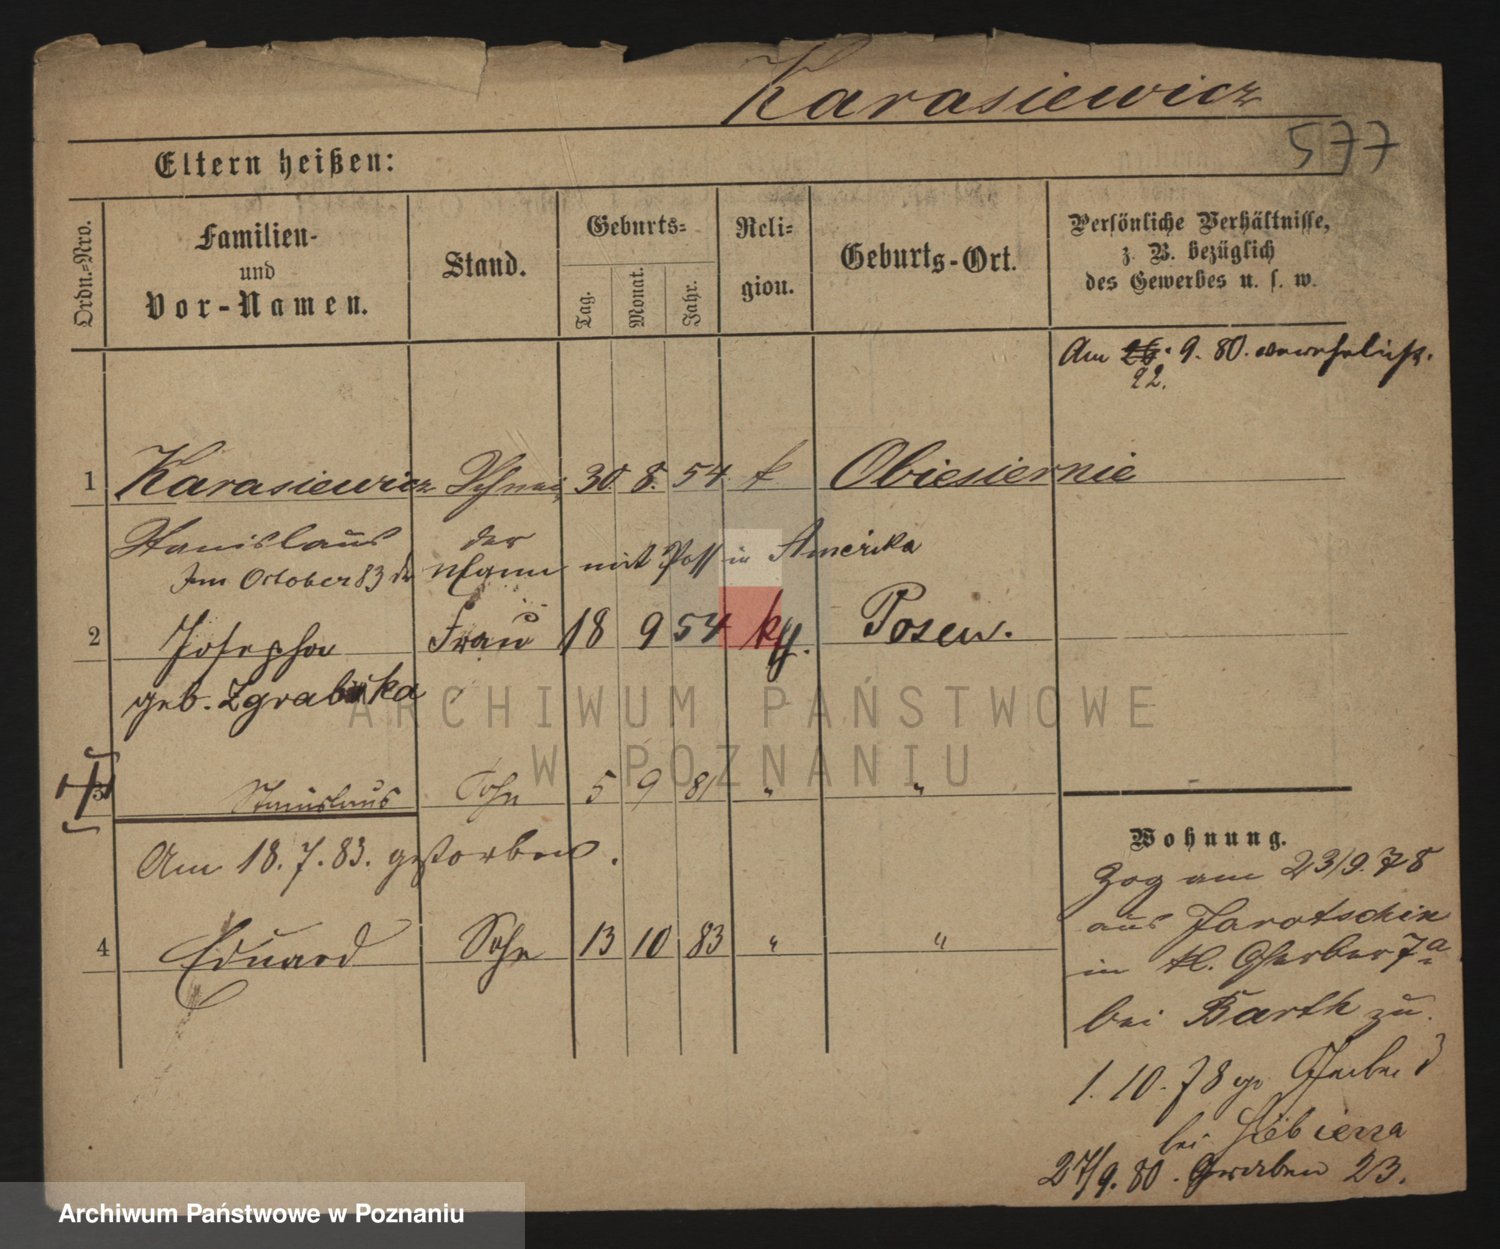 Karasiewicz
577
Eltern heißen:
Ordn.-Nro.
Familien-
und
Vor-Namen.
Stand.
Geburts-
Tag.
Monat.
Jahr.
Reli-
gion.
Geburts-Ort.
Persönliche Verhältnisse,
z. B. bezüglich
des Gewerbes u. s. w.
Am 26. 9. 80. verehelicht.
22.
1 Karasiewicz Schnei 30. 8. 54. k Obiesiernie
Stanislaus der
Im October 83 der Mann mit Pass in Amerika
2 Josepha Frau 18 9 54 kth. Posen.
geb. Zgrabska
3 Stanislaus Sohn 5 9 81 " "
Am 18. 7. 83. gestorben.
4 Eduard Sohn 13 10 83 " "
Wohnung.
Zog am 23/9. 78
aus Jarotschin
in kl. Gerber 7a
bei Barth zu.
1. 10. 78 gr Gerber 3
bei
27/9. 80. Graben 23.
ARCHIWUM PAŃSTWOWE
W POZNANIU
Archiwum Państwowe w Poznaniu